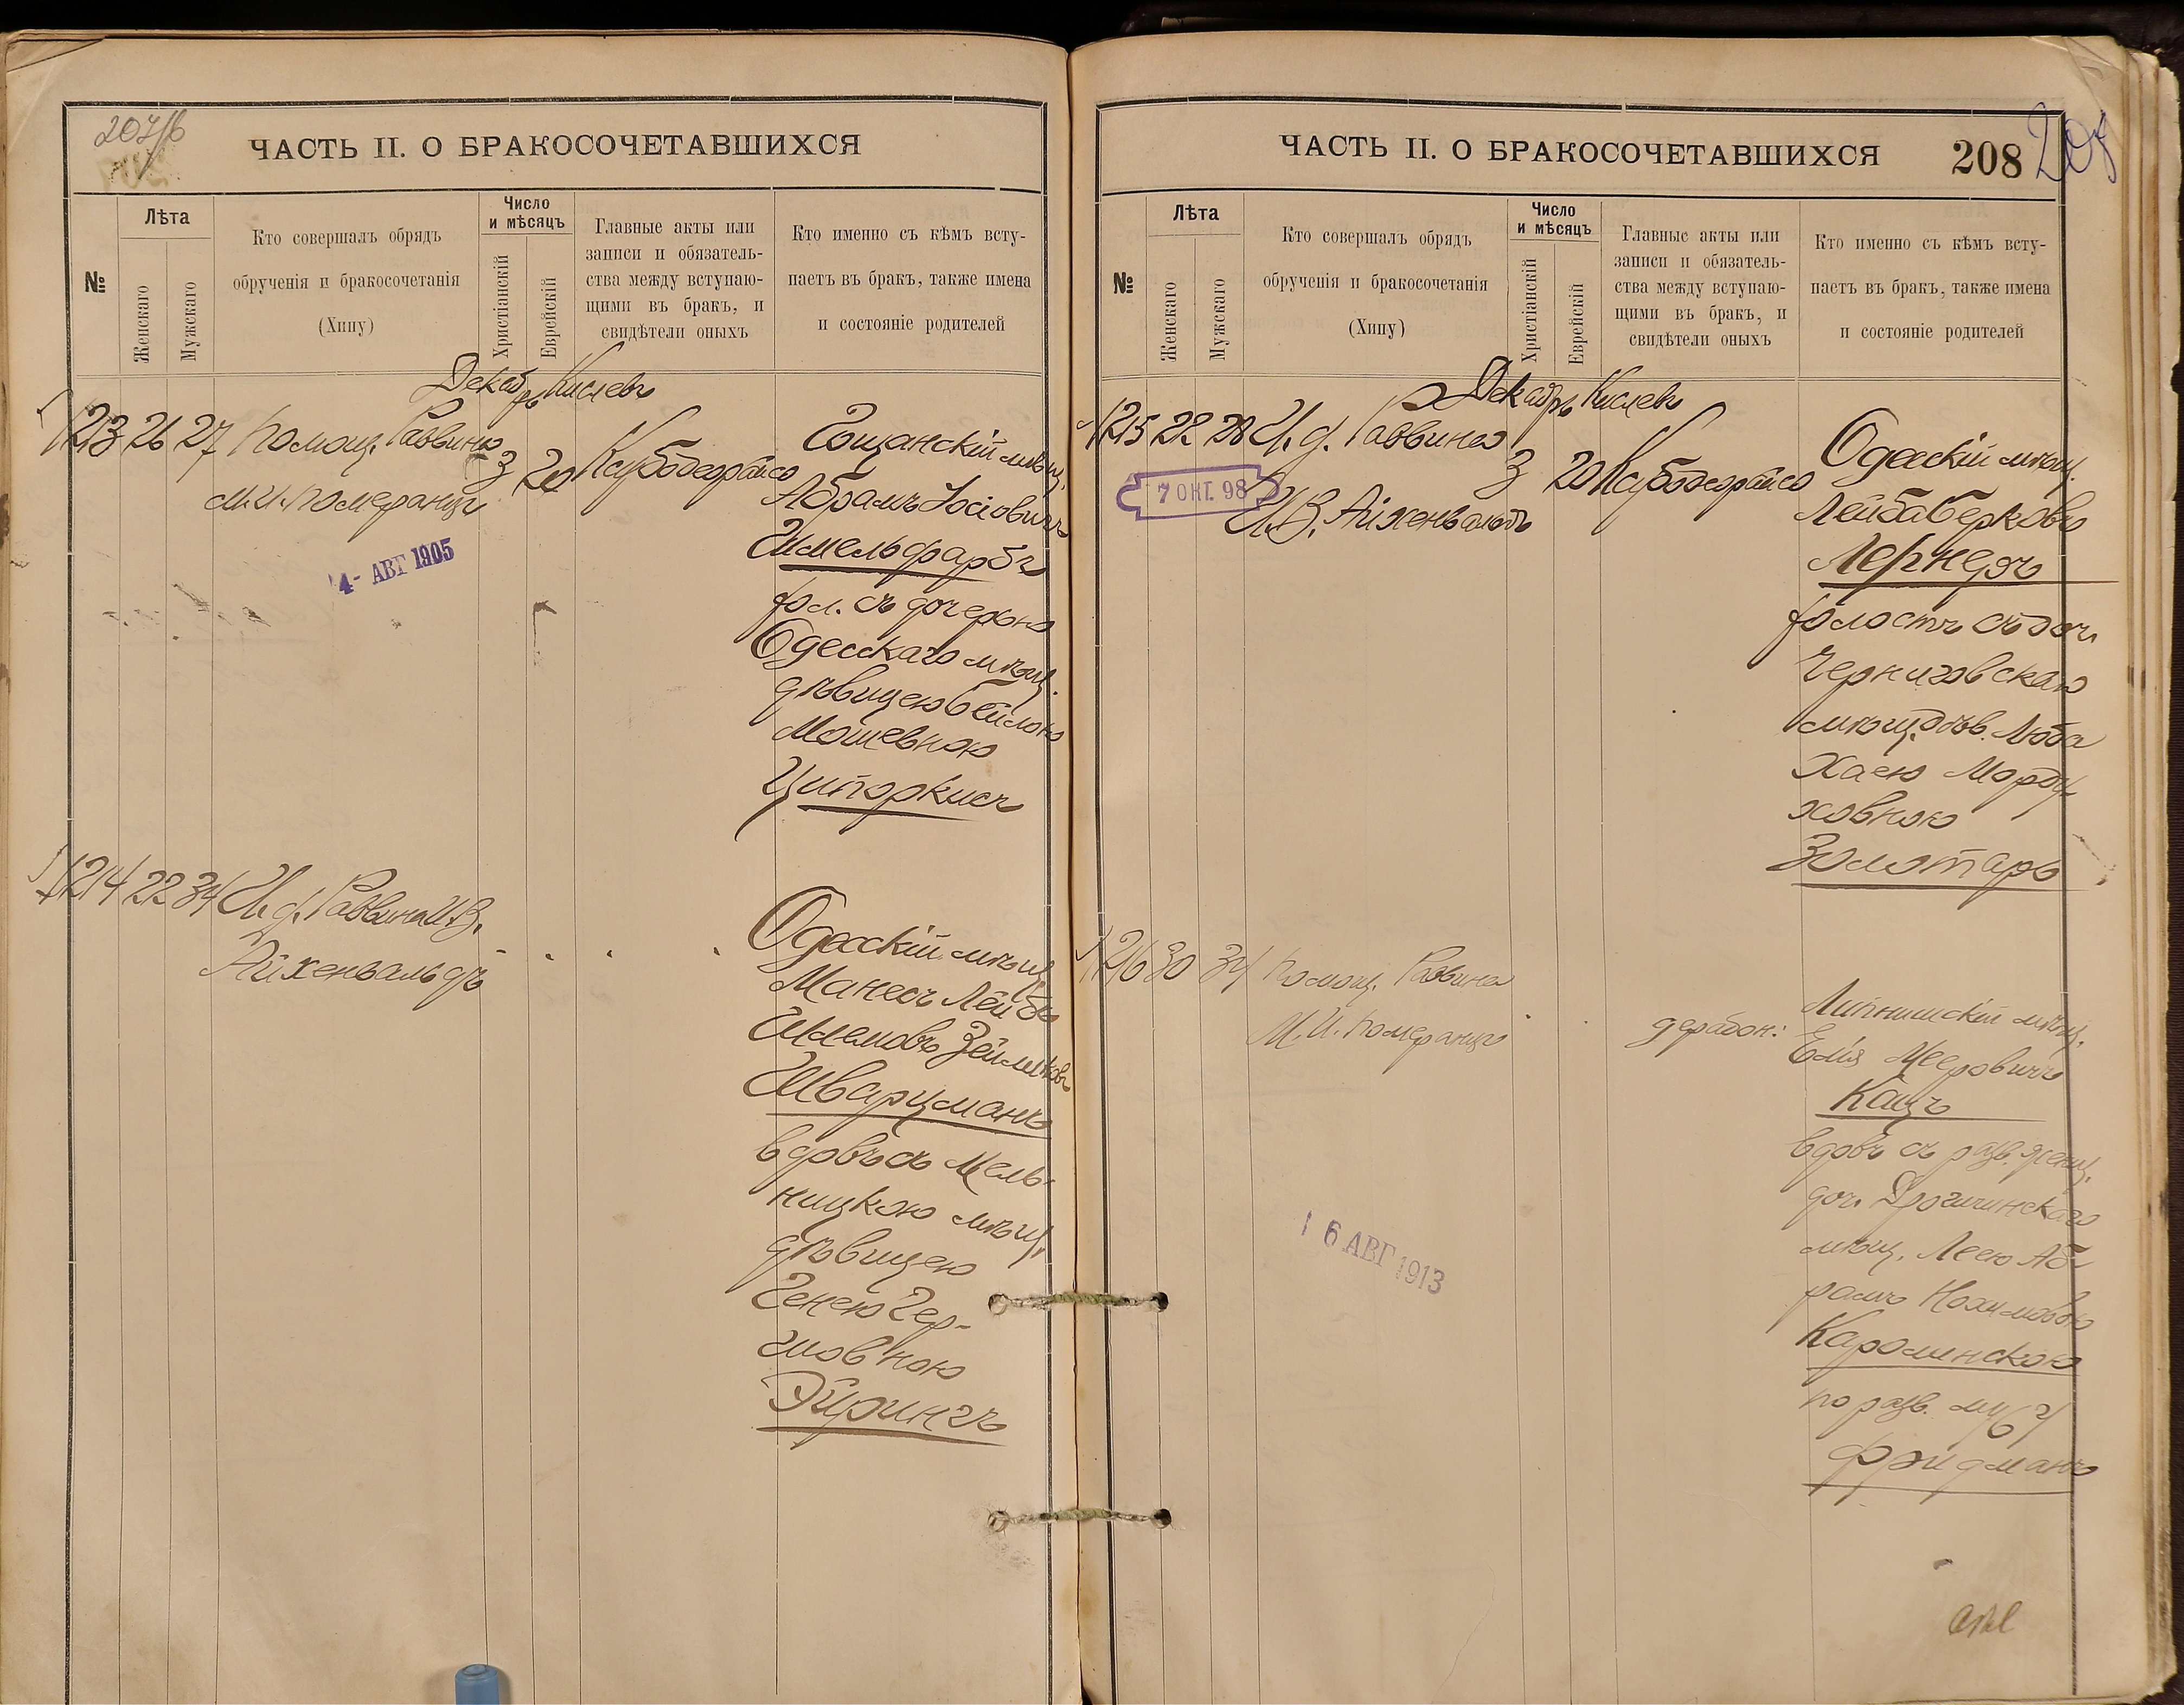 207/б
ЧАСТЬ II. О БРАКОСОЧЕТАВШИХСЯ
№
Лѣта
Женскаго
Мужскаго
Кто совершалъ обрядъ
обрученія и бракосочетанія
(Хипу)
Число
и мѣсяцъ
Христіанскій
Еврейскій
Главные акты или
записи и обязатель-
ства между вступаю-
щими въ бракъ, и
свидѣтели оныхъ
Кто именно съ кѣмъ всту-
паетъ въ бракъ, также имена
и состояніе родителей
Декабрь Кислевъ
1213 26 27 Помощ. Раввина 3 20
М. И. Померанцъ
4- АВГ 1905
Гощанскій мѣщ.
Абрамъ Іосіовичъ
Шмельфарбъ
хол. съ дочерью
Одесскаго мѣщ.
дѣвицею Бейлою
Мошевною
Ципоркисъ
1214 22 34 И. д. Раввина И.В.
Айхенвальдъ
Одесскій мѣщ.
Манесъ Лейбъ
Шлемовъ Зейликовъ
Шварцманъ
вдовъ съ Мель-
ницкою мѣщ.
дѣвицею
Генею Гер-
шовною
Эйрингъ
ЧАСТЬ II. О БРАКОСОЧЕТАВШИХСЯ
208
208
№
Лѣта
Женскаго
Мужскаго
Кто совершалъ обрядъ
обрученія и бракосочетанія
(Хипу)
Число
и мѣсяцъ
Христіанскій
Еврейскій
Главные акты или
записи и обязатель-
ства между вступаю-
щими въ бракъ, и
свидѣтели оныхъ
Кто именно съ кѣмъ всту-
паетъ въ бракъ, также имена
и состояніе родителей
Декабрь Кислевъ
1215 22 28 И. д. Раввина 3 20
И.В. Айхенвальдъ
7 ОКТ. 98
Одесскій мѣщ.
Лейба Берковъ
Лернеръ
холостъ съ доч.
Черниговскаго
мѣщ. дѣв. Люба
Хаею Морду-
ховною
Золотарь
1216 30 34 Помощ. Раввина
М. И. Померанцъ
16 АВГ 1913
Липнишскій мѣщ.
Елія Мееровичъ
Кацъ
вдовъ съ разв. женщ.
доч. Дрогичинскаго
мѣщ. Леею Аб-
рамъ Нохимовою
Каролинскою
по разв. мужу
Фридманъ